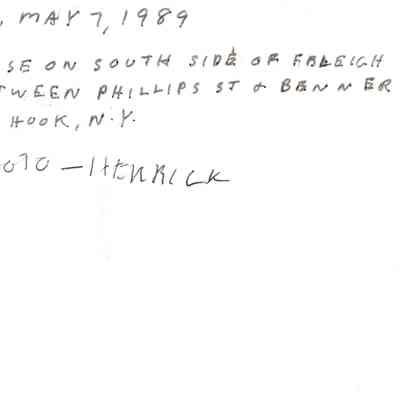 , MAY 7, 1989
SE ON SOUTH SIDE OF FRLEIGH
TWEEN PHILLIPS ST & BENNER
HOOK, N.Y.
OTO — HENRICK